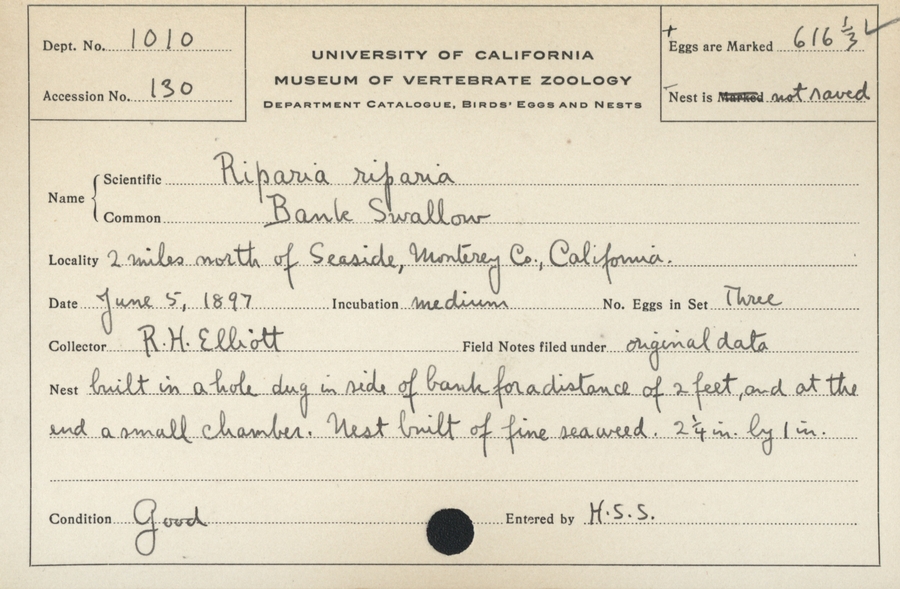 Dept. No. 1010
Accession No. 130
UNIVERSITY OF CALIFORNIA
MUSEUM OF VERTEBRATE ZOOLOGY
DEPARTMENT CATALOGUE, BIRDS' EGGS AND NESTS
+ Eggs are Marked 616 1/3 ✓
– Nest is Marked not saved
Name
Scientific Riparia riparia
Common Bank Swallow
Locality 2 miles north of Seaside, Monterey Co., California.
Date June 5, 1897 Incubation medium No. Eggs in Set Three
Collector R.H. Elliott Field Notes filed under original data
Nest built in a hole dug in side of bank for a distance of 2 feet, and at the
end a small chamber. Nest built of fine seaweed. 2 1/4 in. by 1 in.
Condition Good Entered by H.S.S.